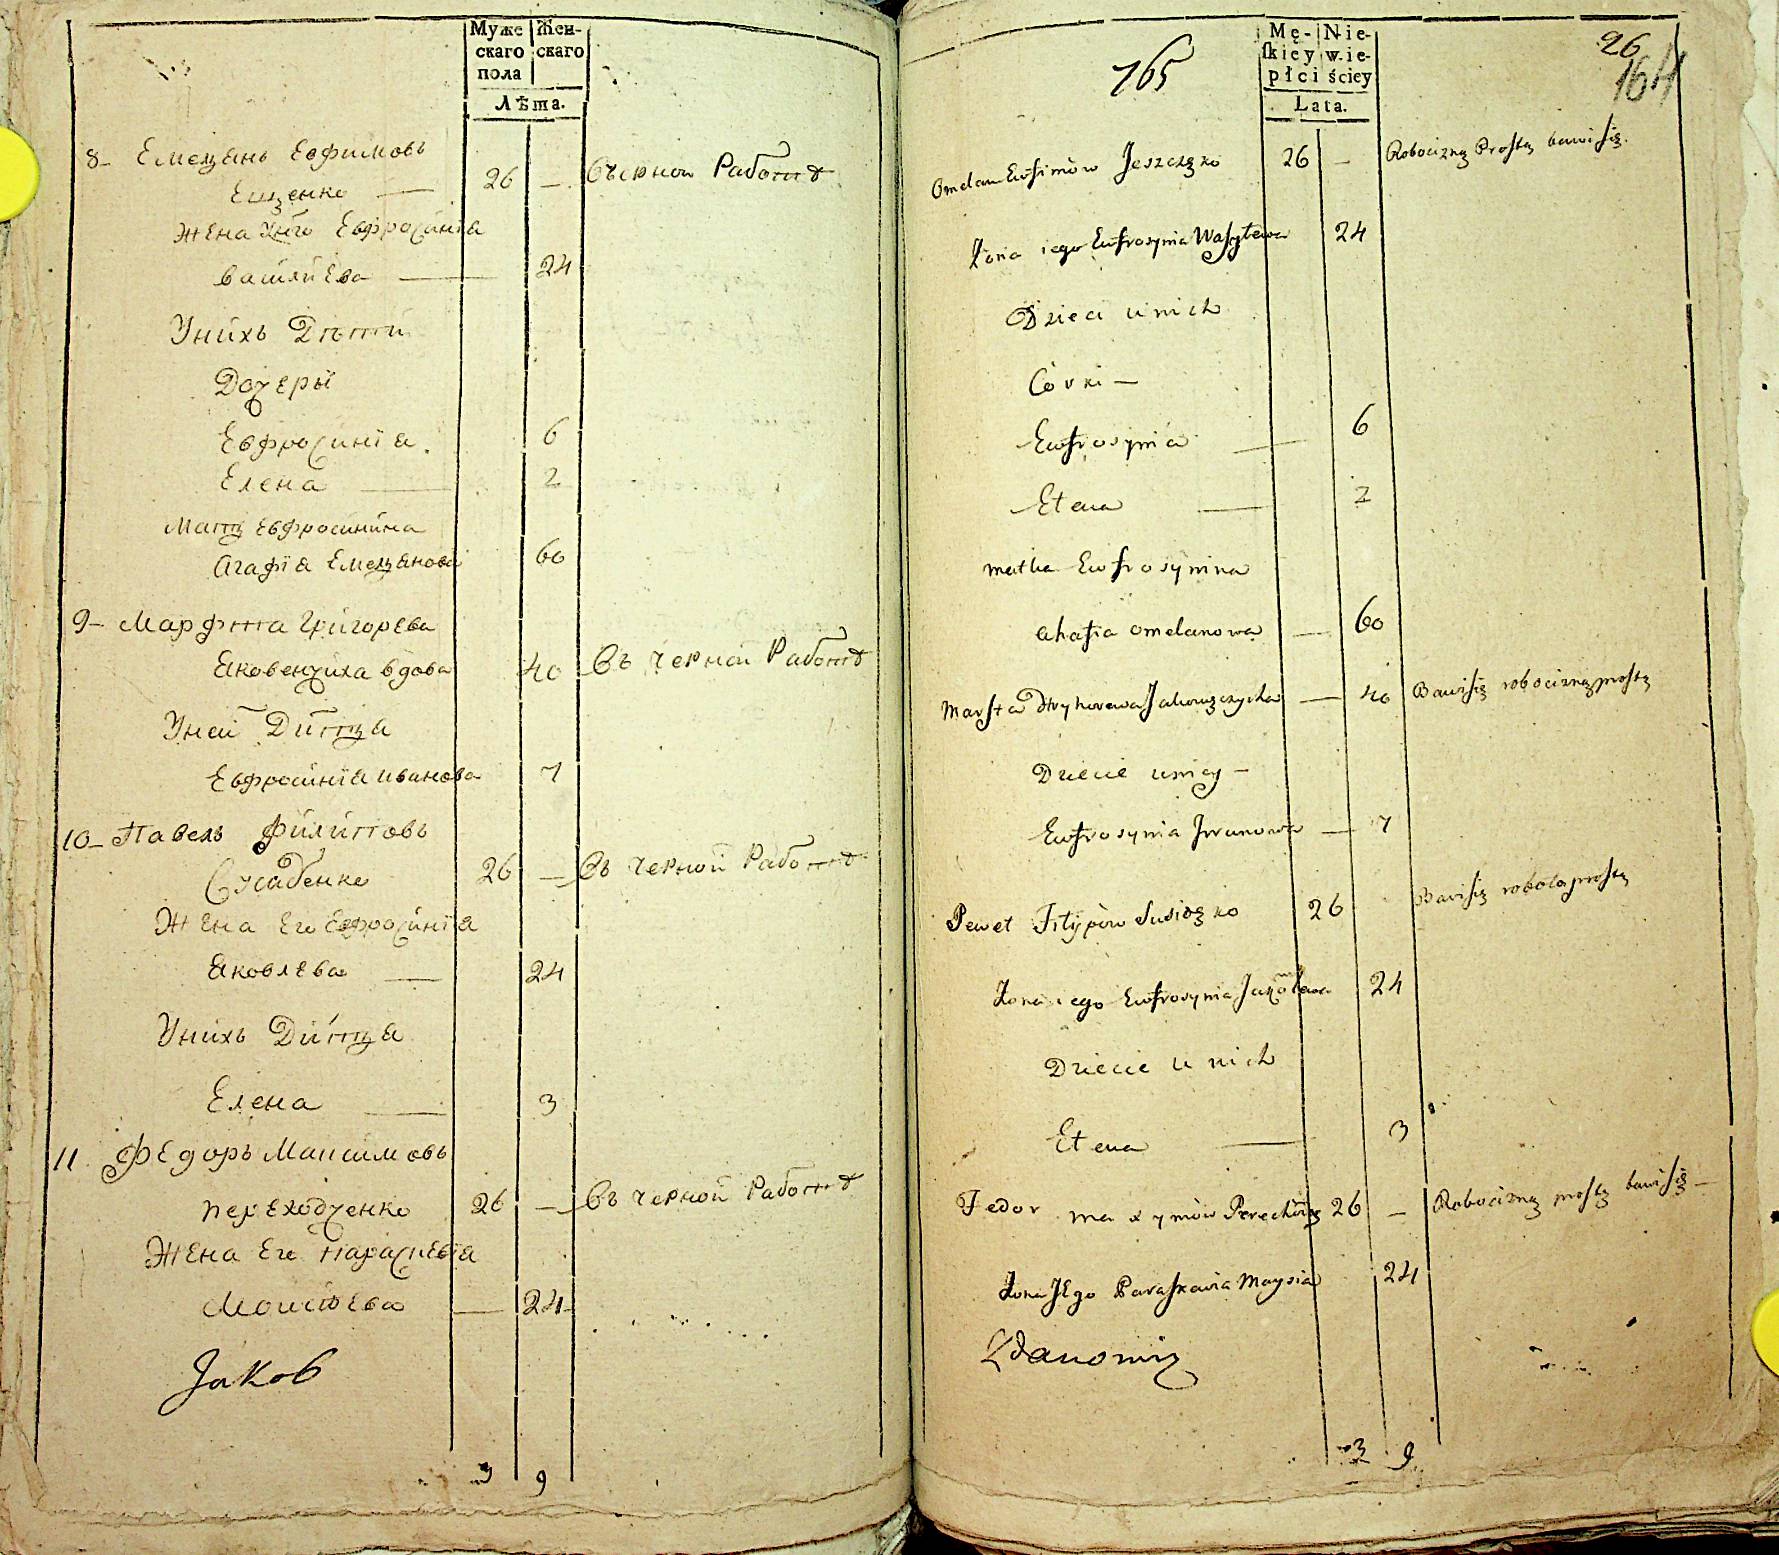 Муже Жен-
скаго скаго
пола
Лѣта.
8- Емелянъ Евфимовъ
Ещенко 26 — Въ черной Работѣ
Жена Его Евфросинїа
василиева — 24
Унихъ Дѣти
Дочеры
Евфросинїа. 6
Елена — 2
Мать Евфросинина
Агафїа Емелянова 60
9- Марфта Григорева
Яковенчиха вдова 40 Въ черной Работѣ
Уней Дитя
Евфросинїа иванова 7
10- Павелъ Филиповъ
Сусабенко 26 — Въ черной Работѣ
Жена Его Евфросинїа
Яковлева — 24
Унихъ Дитя
Елена — 3
11 Федоръ Максимовъ
переходченко 26 — Въ черной Работѣ
Жена Его параскевїа
Моисѣева — 24
Jакоб
3 9
165
Mę- Nie-
skiey wie-
płci ściey
Lata.
26
164
Omelan Eufimów Jeszczęko 26 — Robocizną Prostą bawi się.
Żona iego Eufrosynia Wasylewa 24
Dzieci u nich
Córki —
Eufrosynia — 6
Elena — 2
matka Eufrosynina
ahafia omelanowa — 60
Marfta Hryhorewa Jakowęczycha — 40 Bawi się robocizną prostą
Dziecie u niey —
Eufrosynia Jwanowa — 7
Pewel Filypów Susidęko 26 Bawi się robotą prostą
Żona iego Eufrosynia Jakowlewa 24
Dziecie u nich
Elena — 3
Fedor maxymów Perechodz 26 — Robocizną prostą bawi się —
Żona JEgo Paraskewia Maysia 24
Zdanowicz
3 9